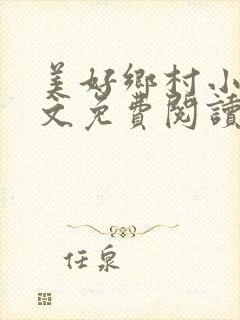 美好鄉村小
文免費閱讀
任泉